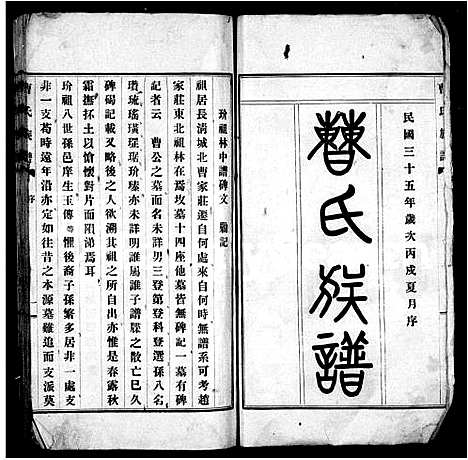 民國三十五年歲次丙戌夏月序
曹氏族譜
玠祖林中譜碑文 附記
祖居長清城北曹家莊遷自何處來自何時無譜系可考趙
家莊東北祖林在焉坟墓十四座他墓皆無碑記一墓有碑
記者云 曹公之墓而名未詳男三登第登科登選孫八名
琉瑜璜珵琚玠瑧亦未詳明誰子誰譜牒之散亡已久
碑碣記載又略後之人欲溯其祖之所自出亦惟是春露秋
霜撫抔土以愴懷對片面而阻涕焉耳
玠祖八世孫邑庠生玉傳等惟後裔子孫繁多居非一處支
非一支苟時遠年沿亦定如往昔之本源墓難追而支派莫
曹氏族譜
序